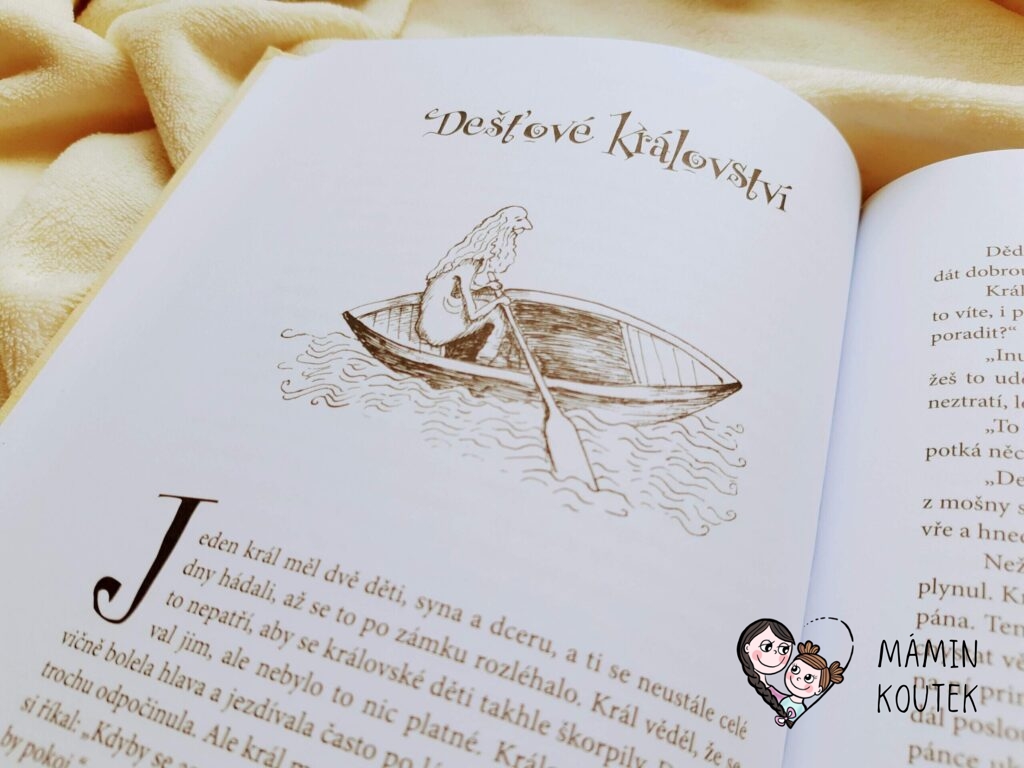 Dešťové Království
Jeden král měl dvě děti, syna a dceru, a ti se neustále celé
dny hádali, až se to po zámku rozléhalo. Král věděl, že se
to nepatří, aby se královské děti takhle škorpily.
val jim, ale nebylo to nic platné.
vičně bolela hlava a jezdívala často po
trochu odpočinula. Ale král
si říkal: „Kdyby se
by pokoj.“
dát dobro
to víte, i p
poradit?“
„Inu
žeš to ud
neztratí, l
„To
potká něc
„De
z mošny s
vře a hned
Než
plynul. K
pána. Ten
dál poslo
MÁMIN
KOUTEK